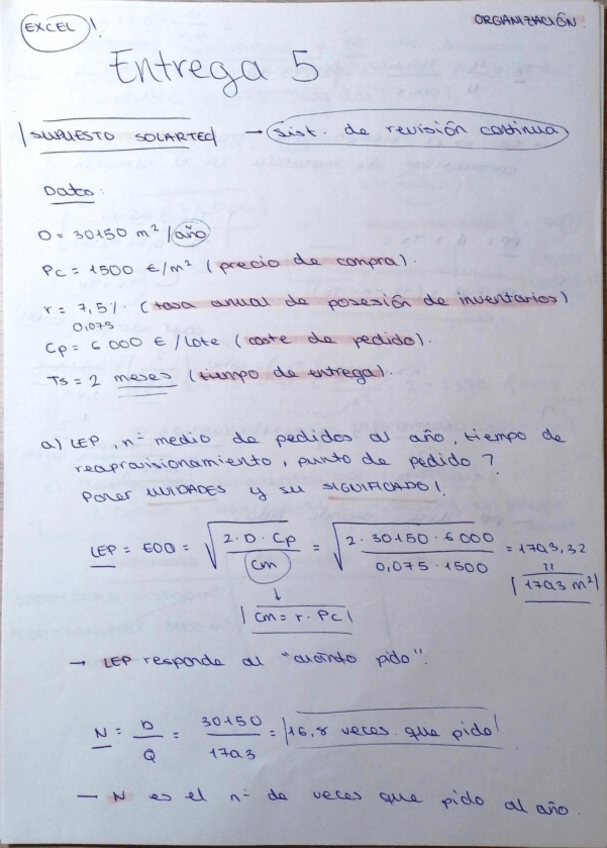 EXCEL !
ORGANIZACIÓN.
Entrega 5
|SUPUESTO SOLARTEC| → Sist. de revisión continua
Datos:
D = 30150 m² / año
Pc = 1500 €/m² (precio de compra).
r = 7,5%. (tasa anual de posesión de inventarios)
0,075
Cp = 6000 € / Lote (coste de pedido).
Ts = 2 meses (tiempo de entrega).
a) LEP, nº medio de pedidos al año, tiempo de
reaprovisionamiento, punto de pedido?
Poner UNIDADES y su SIGNIFICADO!
LEP = EOQ = √(2·D·Cp / Cm) = √(2·30150·6000 / 0,075·1500) = 1793,32
=
|1793 m²|
↓
|Cm = r · Pc|
→ LEP responde al "cuánto pido".
N = D/Q = 30150/1793 = |16,8 veces que pido|
— N es el nº de veces que pido al año.